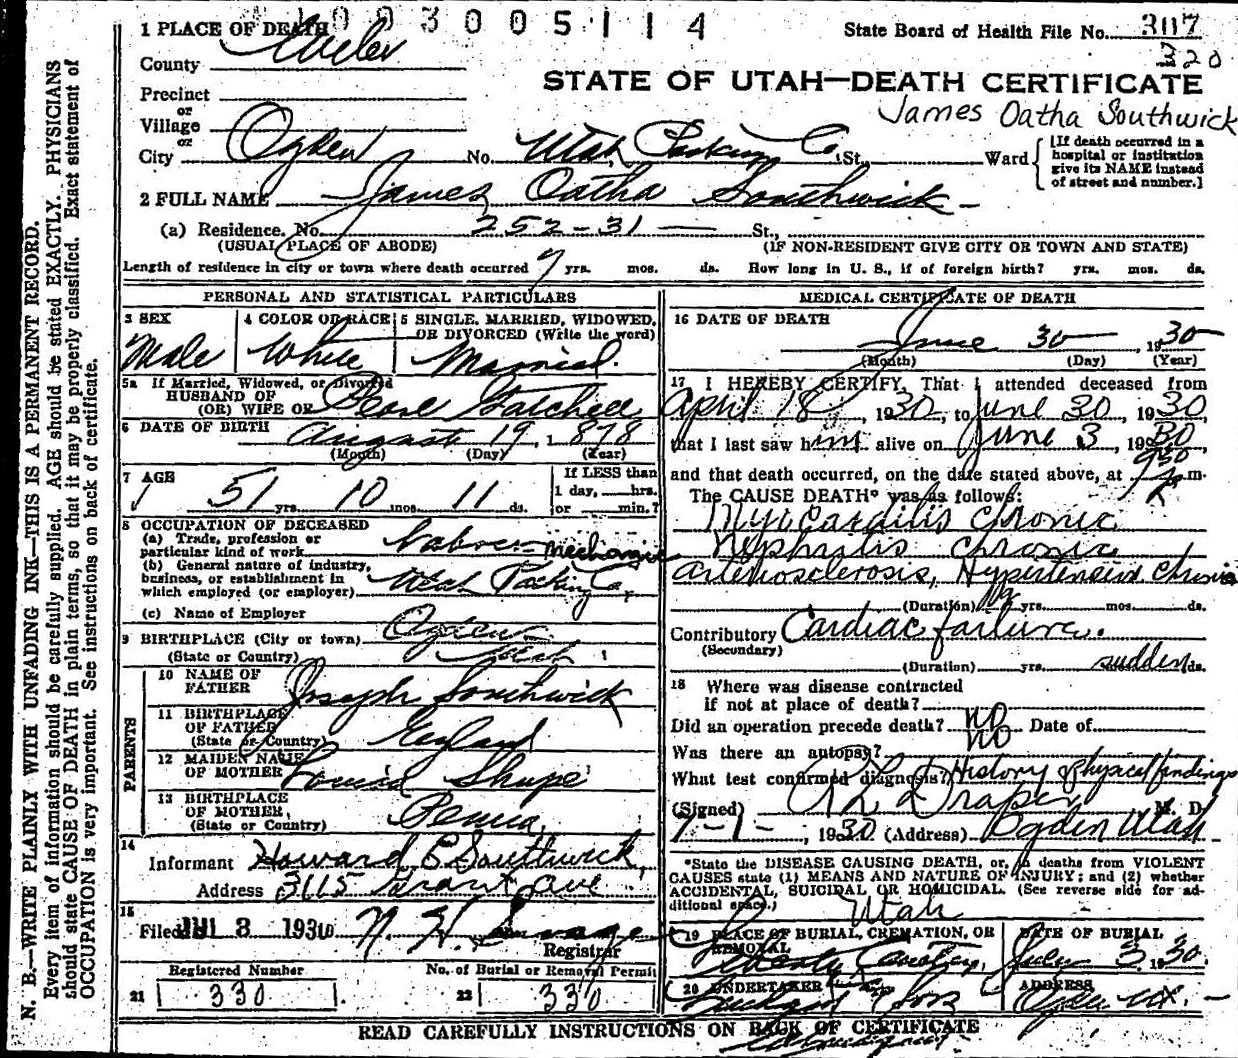 1003005114
State Board of Health File No. 307
320
1 PLACE OF DEATH
County Weber
STATE OF UTAH—DEATH CERTIFICATE
James Oatha Southwick
Precinct
or
Village
or
City Ogden No. Utah Packing Co. St., Ward
[If death occurred in a hospital or institution give its NAME instead of street and number.]
2 FULL NAME James Oatha Southwick
(a) Residence. No. 252-31 St.,
(USUAL PLACE OF ABODE) (IF NON-RESIDENT GIVE CITY OR TOWN AND STATE)
Length of residence in city or town where death occurred 7 yrs. mos. ds. How long in U. S., if of foreign birth? yrs. mos. ds.
PERSONAL AND STATISTICAL PARTICULARS
3 SEX
Male
4 COLOR OR RACE
White
5 SINGLE, MARRIED, WIDOWED, OR DIVORCED (Write the word)
Married.
5a If Married, Widowed, or Divorced
HUSBAND OF
(OR) WIFE OF Pearl Gatchell
6 DATE OF BIRTH August 19, 1878
(Month) (Day) (Year)
7 AGE
51 yrs. 10 mos. 11 ds.
If LESS than
1 day, hrs.
or min.?
8 OCCUPATION OF DECEASED
(a) Trade, profession or
particular kind of work Labor mechanic
(b) General nature of industry,
business, or establishment in
which employed (or employer) Utah Packing Co.
(c) Name of Employer
9 BIRTHPLACE (City or town) Ogden
(State or Country) Utah
PARENTS
10 NAME OF
FATHER Joseph Southwick
11 BIRTHPLACE
OF FATHER
(State or Country) England
12 MAIDEN NAME
OF MOTHER Louisa Shupe
13 BIRTHPLACE
OF MOTHER,
(State or Country) Penna,
14
Informant Howard E Southwick,
Address 3115 Grant Ave
15
Filed JUL 3 1930
Registrar
Registered Number
21 330
No. of Burial or Removal Permit
22 330
MEDICAL CERTIFICATE OF DEATH
16 DATE OF DEATH
June 30, 1930
(Month) (Day) (Year)
17 I HEREBY CERTIFY, That I attended deceased from
April 18, 1930, to June 30, 1930,
that I last saw him alive on June 3, 1930
and that death occurred, on the date stated above, at 9:30 m.
The CAUSE DEATH* was as follows:
Myocarditis chronic
Nephritis chronic
arteriosclerosis, Hypertension Chronic
(Duration) yrs. mos. ds.
Contributory Cardiac failure.
(Secondary)
(Duration) yrs. sudden ds.
18 Where was disease contracted
if not at place of death?
Did an operation precede death? no Date of
Was there an autopsy? no
What test confirmed diagnosis? History & physical findings
(Signed) Draper M. D.
7-1-, 1930 (Address) Ogden Utah
*State the DISEASE CAUSING DEATH, or, in deaths from VIOLENT
CAUSES state (1) MEANS AND NATURE OF INJURY; and (2) whether
ACCIDENTAL, SUICIDAL OR HOMICIDAL. (See reverse side for ad-
ditional space.)
Utah
19 PLACE OF BURIAL, CREMATION, OR
REMOVAL
DATE OF BURIAL
July 3, 1930.
20 UNDERTAKER
& Sons
ADDRESS
Ogden Ut.
READ CAREFULLY INSTRUCTIONS ON BACK OF CERTIFICATE
N. B.—WRITE PLAINLY WITH UNFADING INK—THIS IS A PERMANENT RECORD.
Every item of information should be carefully supplied. AGE should be stated EXACTLY. PHYSICIANS
should state CAUSE OF DEATH in plain terms, so that it may be properly classified. Exact statement of
OCCUPATION is very important. See instructions on back of certificate.